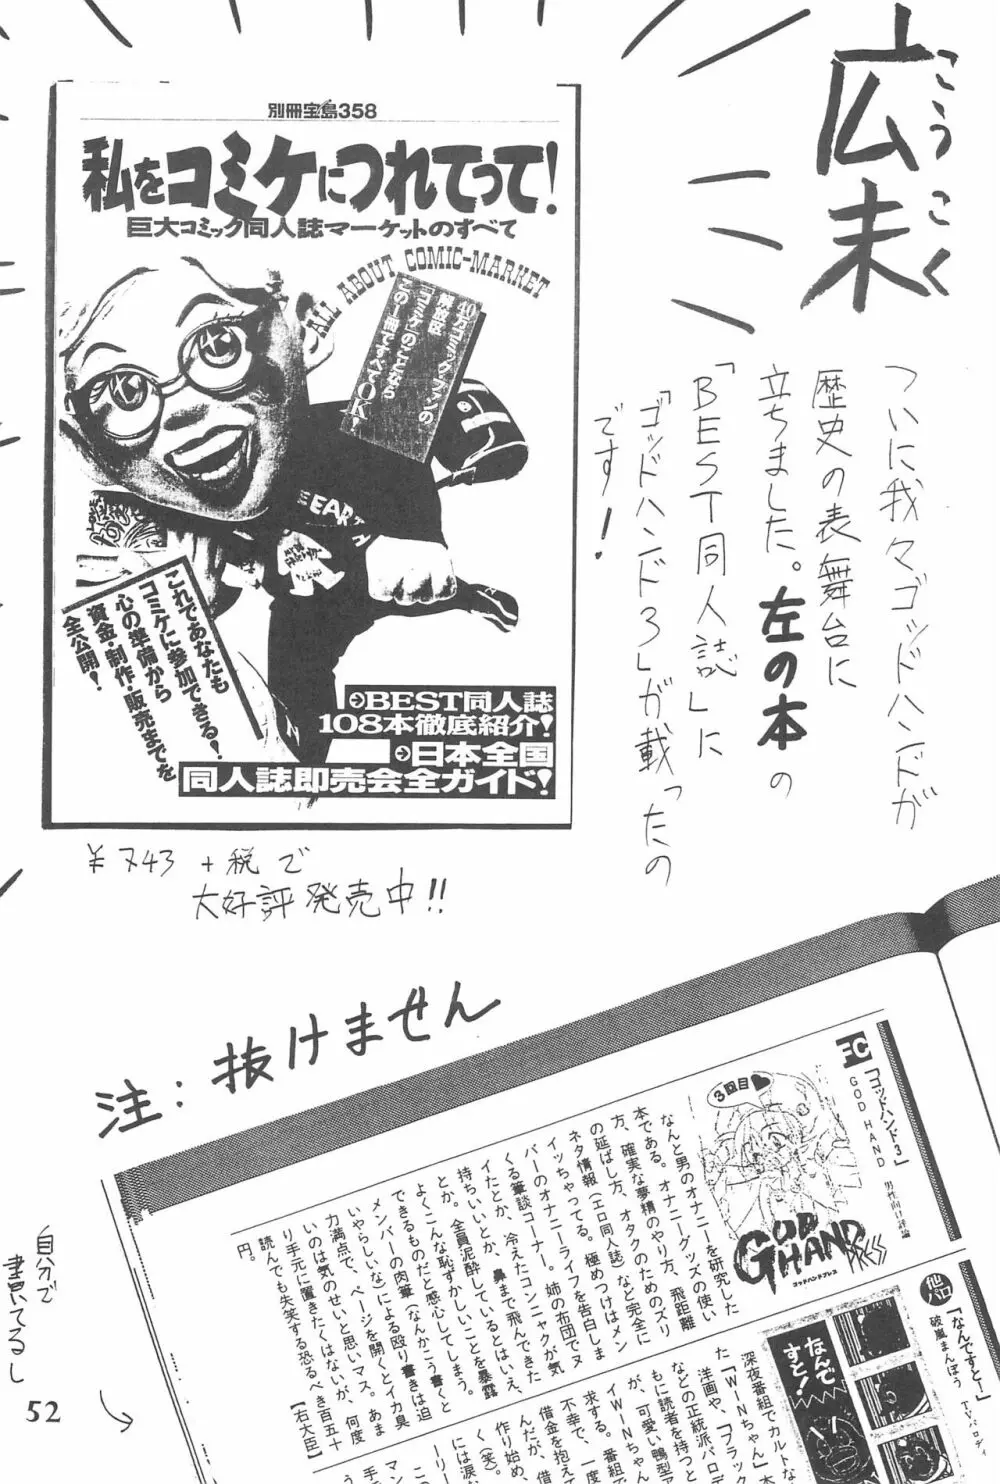 広末
こうこく
ついに我々ゴッドハンドが
歴史の表舞台に
立ちました。左の本の
「BEST同人誌」に
「ゴッドハンド3」が載ったの
です!
別冊宝島358
私をコミケにつれてって!
巨大コミック同人誌マーケットのすべて
ALL ABOUT COMIC-MARKET
40万コミックファンの
解放区
「コミケ」のことなら
この1冊ですべてOK!
EARTH
これであなたも
コミケに参加できる!
心の準備から
資金・制作・販売までを
全公開!
BEST同人誌
108本徹底紹介!
日本全国
同人誌即売会全ガイド!
¥743+税で
大好評発売中!!
注:抜けません
「ゴッドハンド3」
GOD HAND
男性向け評論
3回目
GOD HAND PRESS
ゴッドハンドプレス
なんと男のオナニーを研究した
本である。オナニーグッズの使い
方、確実な夢精のやり方、飛距離
の延ばし方、オタクのためのズリ
ネタ情報(エロ同人誌)など完全に
イッちゃってる。極めつけはメン
バーのオナニーライフを告白しま
くる筆談コーナー。姉の布団でヌ
イたとか、冷えたコンニャクが気
持ちいいとか、鼻まで飛んできた
とか。全員泥酔しているとはいえ、
よくこんな恥ずかしいことを暴露
できるものだと感心してしまう。
メンバーの肉筆(なんかこう書くと
いやらしいな)による殴り書きは迫
力満点で、ページを開くとイカ臭
いのは気のせいと思いマス。あま
り手元に置きたくはないが、何度
読んでも失笑する恐るべき百五十
円。
【右大臣】
他パロ
「なんですと!」
破嵐まんぼう
TVパロディ
なんですと!
深夜番組でカルトな
た「WINちゃん」本
洋画や、「ブラック
などの正統派パロデ
もに読者を持つと
が、可愛い鴨型テ
イWINちゃん
求する。番組で
不幸で、一度
んだが、借
借金を抱えて
作り始め、
く(笑)。
には涙な
ーリー
マン
手
自分で
書いてるし
52